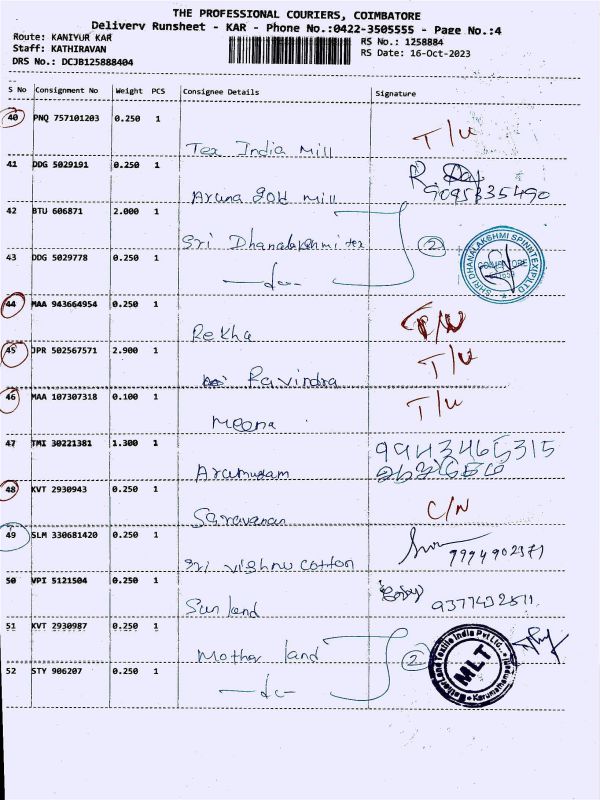 THE PROFESSIONAL COURIERS, COIMBATORE
Delivery Runsheet - KAR - Phone No.:0422-3505555 - Page No.:4
Route: KANIYUR KAR
RS No.: 1258884
Staff: KATHIRAVAN
RS Date: 16-Oct-2023
DRS No.: DCJB125888404
S No Consignment No Weight PCS Consignee Details Signature
40 PNQ 757101203 0.250 1
Tex India Mill T/U
41 DDG 5029191 0.250 1
Aruna gold mill 9095835490
42 BTU 606871 2.000 1
Sri Dhanalakshmi tex 2
SHRI DHANALAKSHMI SPINNTEX(P)LTD
43 DDG 5029778 0.250 1
-do-
44 MAA 943664954 0.250 1
Rekha
45 JPR 502567571 2.900 1
Ravindra T/U
46 MAA 107307318 0.100 1
Meena T/U
47 TMI 30221381 1.300 1
Arumugam 9943465315
48 KVT 2930943 0.250 1
Saravanan C/N
49 SLM 330681420 0.250 1
Sri vishnu cotton 9994902371
50 VPI 5121504 0.250 1
Sun land
51 KVT 2930987 0.250 1
Mother land 2
Motherland Textile India Pvt Ltd.,
MLT
Karumathampatti
52 STY 906207 0.250 1
-do-